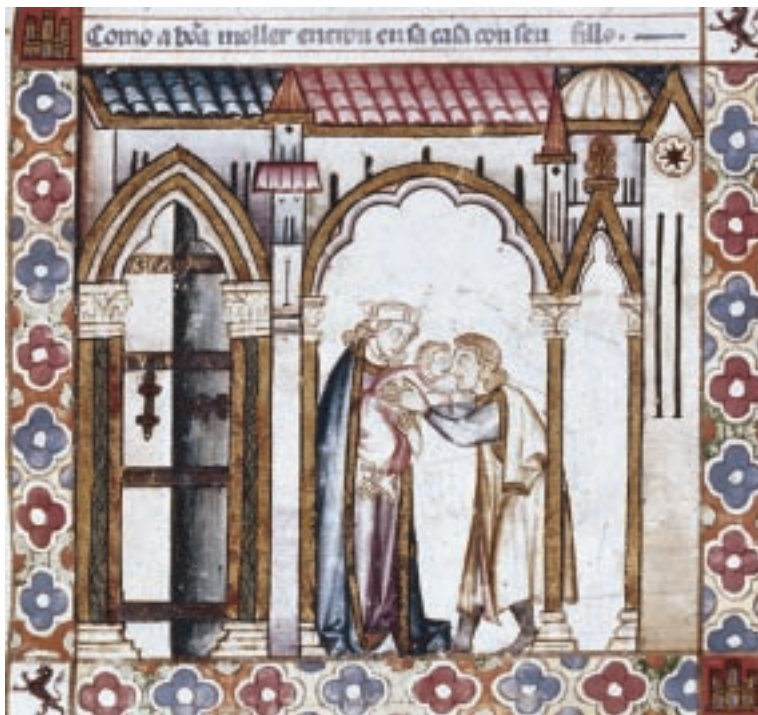 Como a bõa moller entrou en sa casa con seu fillo.